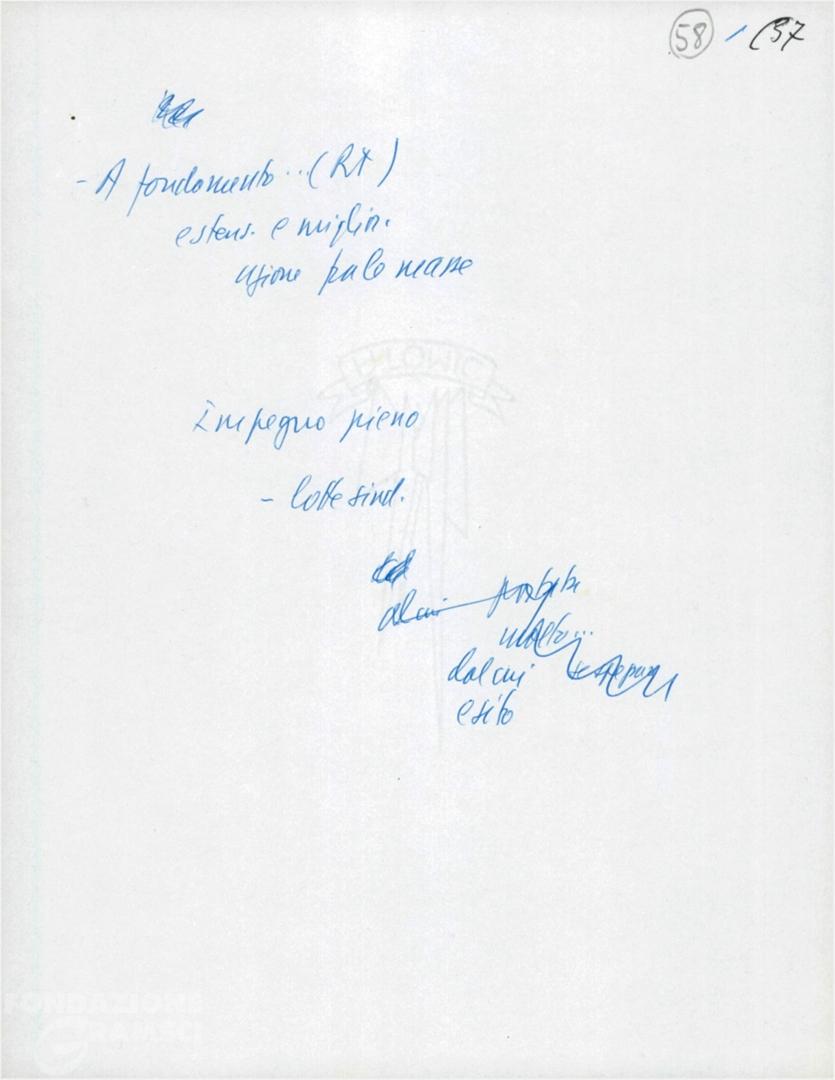 58 / (37
- A fondamento .. (RX)
estens. e miglior.
azione tra le masse
Impegno pieno
- lotte sind.
al cui
molto...
dal cui
esito
FONDAZIONE
GRAMSCI